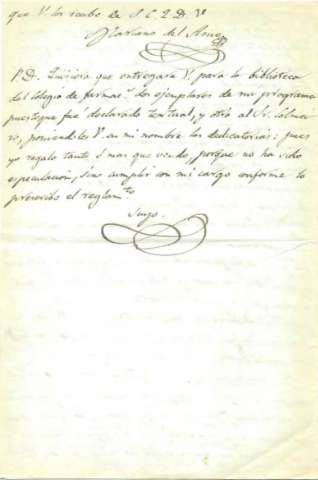 que V. los reciba de S. S. S. Q. B.
Mariano del Amo
P.D. Quisiera que entregara V. para la biblioteca
del Colegio de farmac.ª dos ejemplares de mi programa
puesto que fué declarado textual, y otro al Sr. Colmei
ro, poniendoles V. en mi nombre las dedicatorias: pues
yo regalo tanto ó mas que vendo, porque no ha sido
especulacion, sino cumplir con mi cargo conforme lo
prevenido el reglam.to
Suyo.